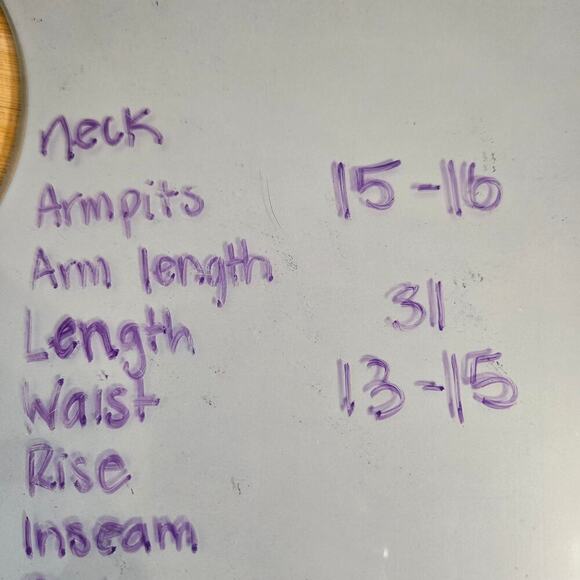 neck
Armpits 15-16
Arm length
Length 31
Waist 13-15
Rise
Inseam